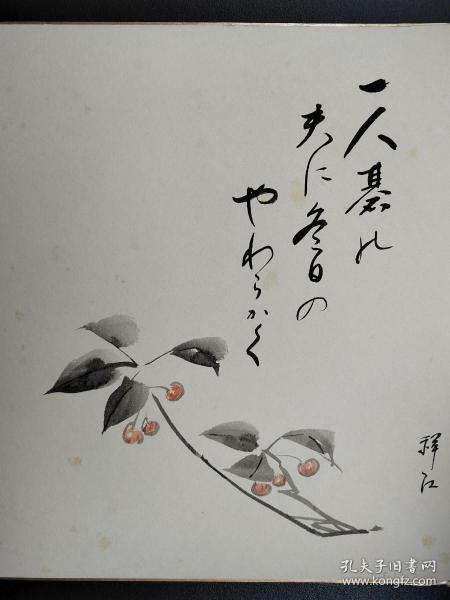 一人碁の
夫に冬日の
やわらかく
祥江
孔夫子旧书网
www.kongfz.com